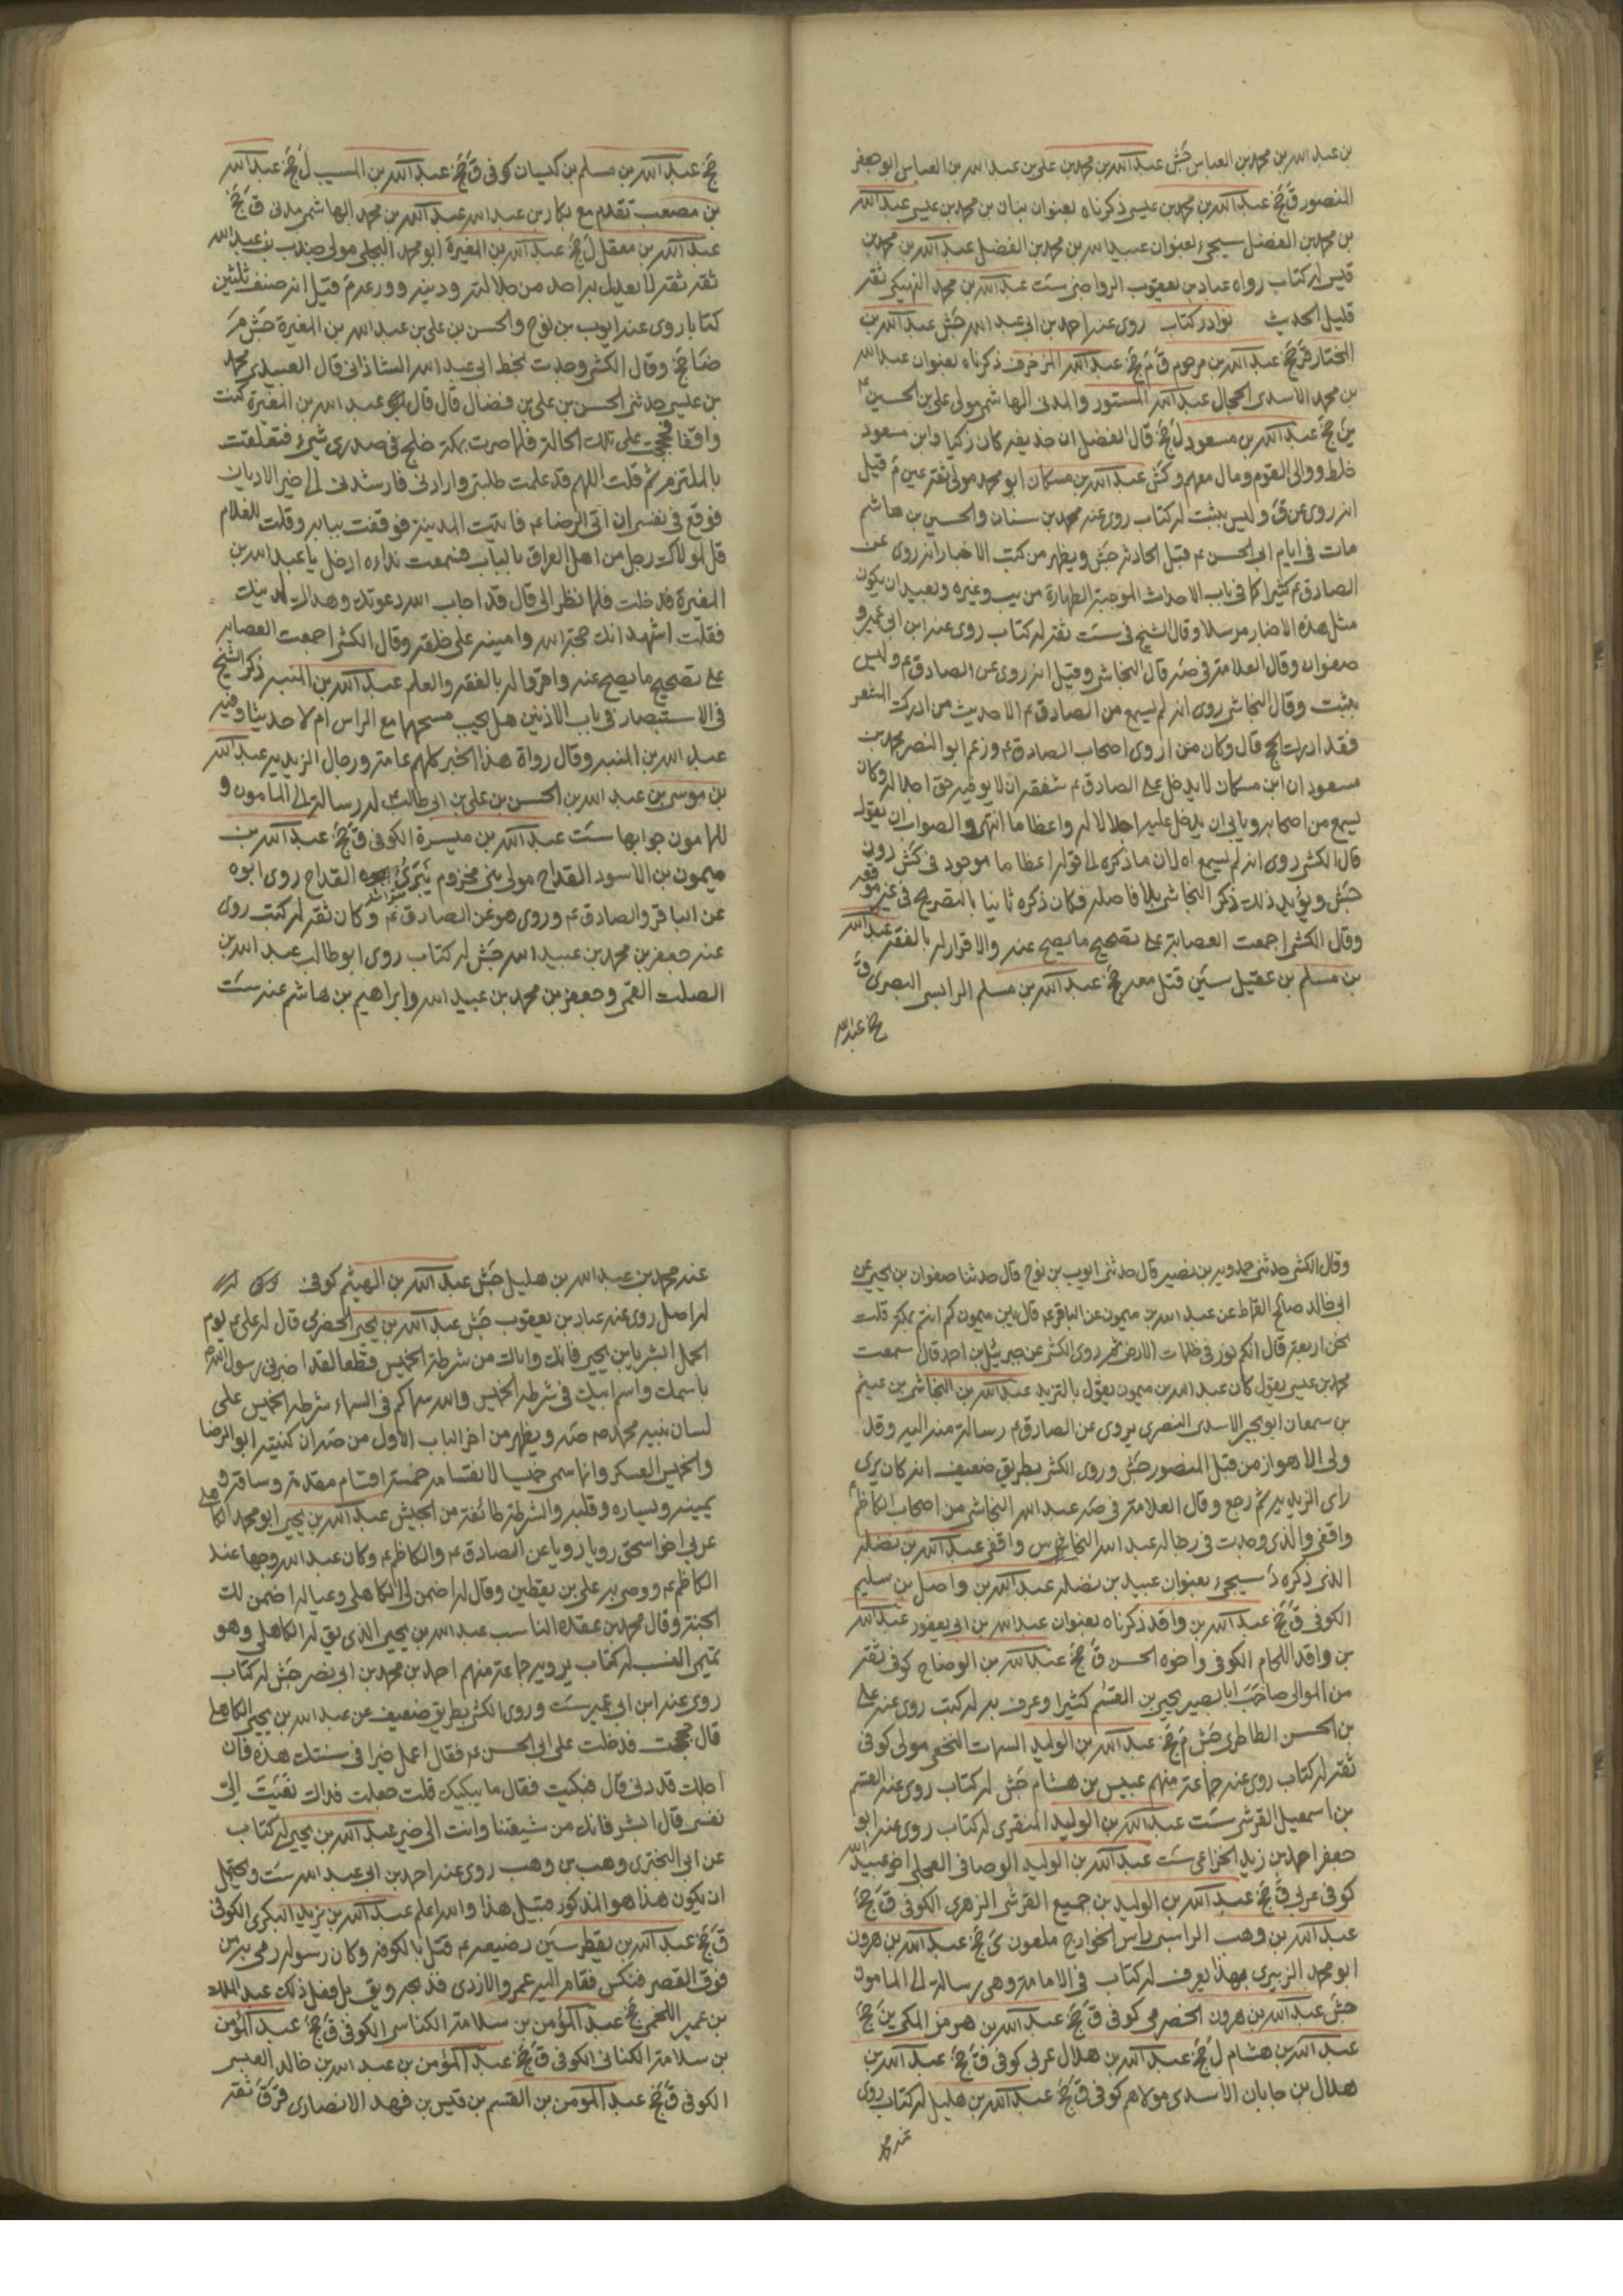 بن عبد الله بن محمد بن العباس جش عبد الله بن محمد بن علي بن عبد الله بن العباس ابو جعفر
المنصور ق جخ عبد الله بن محمد بن عيسى ذكرناه بعنوان بنان بن محمد بن عيسى عبد الله
بن محمد بن الفضل سيجيء بعنوان عبيد الله بن محمد بن الفضل عبد الله بن محمد بن
قيس له كتاب رواه عباد بن يعقوب الرواجني ست عبد الله بن محمد النهيكي ثقة
قليل الحديث نوادر كتاب روى عنه احمد بن ابي عبد الله جش عبد الله بن
المختار قر جخ عبد الله بن مرحوم ق م جخ عبد الله المزخرف ذكرناه بعنوان عبد الله
بن محمد الاسدي الحجال عبد الله المستور والمدني الهاشمي مولى علي بن الحسين ع
ين جخ عبد الله بن مسعود ل جخ قال الفضل ان حذيفة كان زكيا وابن مسعود
خلط ووالى القوم ومال معهم وكش عبد الله بن مسكان ابو محمد مولى ثقة عين م قيل
انه روى عن ق وليس بثبت له كتاب روى عنه محمد بن سنان والحسين بن هاشم
مات في ايام ابي الحسن ع قبل الحادثة جش ويظهر من كتب الاخبار انه روى عن
الصادق ع كثيرا كما في باب الاحداث الموجبة للطهارة من يب وغيره وبعيد ان يكون
مثل هذه الاخبار مرسلا وقال الشيخ في ست ثقة له كتاب روى عنه ابن ابي عمير و
صفوان وقال العلامة في صه قال النجاشي وقيل انه روى عن الصادق ع وليس
بثبت وقال النجاشي روى انه لم يسمع من الصادق ع الا حديث من ادرك المشعر
فقد ادرك الحج قال وكان من اروى اصحاب الصادق ع وزعم ابو النضر محمد بن
مسعود ان ابن مسكان لا يدخل على الصادق ع شفقة ان لا يوفيه حق اجلاله وكان
يسمع من اصحابه ويابى ان يدخل عليه اجلالا له واعظاما انتهى والصواب ان يقول
قال الكشي روى انه لم يسمع اه لان ما ذكره الى قوله اعظاما موجود في كش دون
جش ويؤيد ذلك ذكر النجاشي بلا فاصلة فكان ذكره ثانيا بالتصريح في غير موقعه
وقال الكشي اجمعت العصابة على تصحيح ما يصح عنه والاقرار له بالفقه عبد الله
بن مسلم بن عقيل سين قتل معه جخ عبد الله بن مسلم الراسبي البصري ق
جخ عبد الله
جخ عبد الله بن مسلم بن كيسان كوفي ق جخ عبد الله بن المسيب ل جخ عبد الله
بن مصعب تقدم مع بكار بن عبد الله عبد الله بن محمد الهاشمي مدني ق جخ
عبد الله بن معقل ل جخ عبد الله بن المغيرة ابو محمد البجلي مولى جندب بن عبد الله
ثقة ثقة لا يعدل به احد من جلالته ودينه وورعه م قيل انه صنف ثلثين
كتابا روى عنه ايوب بن نوح والحسن بن علي بن عبد الله بن المغيرة جش م
ضا جخ وقال الكشي وجدت بخط ابي عبد الله الشاذاني قال العبيدي محمد
بن عيسى حدثني الحسن بن علي بن فضال قال قال عبد الله بن المغيرة كنت
واقفا فحججت على تلك الحالة فلما صرت بمكة خلج في صدري شيء فتعلقت
بالملتزم ثم قلت اللهم قد علمت طلبتي وارادتي فارشدني الى خير الاديان
فوقع في نفسي ان اتى الرضا ع فاتيت المدينة فوقفت ببابه وقلت للغلام
قل لمولاك رجل من اهل العراق بالباب فسمعت نداءه ادخل يا عبد الله بن
المغيرة فدخلت فلما نظر الي قال قد اجاب الله دعوتك وهداك لدينك
فقلت اشهد انك حجة الله وامينه على خلقه وقال الكشي اجمعت العصابة
على تصحيح ما يصح عنه واقروا له بالفقه والعلم عبد الله بن المنبه ذكر الشيخ
في الاستبصار في باب الاذنين هل يجب مسحهما مع الراس ام لا حديثا وفيه
عبد الله بن المنبه وقال رواة هذا الخبر كلهم عامة ورجال الزيدية عبد الله
بن موسى بن عبد الله بن الحسن بن علي بن ابي طالب ع له رسالة الى المامون و
للمامون جوابها ست عبد الله بن ميسرة الكوفي ق جخ عبد الله بن
ميمون بن الاسود القداح مولى بني مخزوم يبري القداح روى ابوه
عن الباقر والصادق ع وروى هو عن الصادق ع وكان ثقة له كتب روى
عنه جعفر بن محمد بن عبيد الله جش له كتاب روى ابو طالب عبد الله بن
الصلت القمي وجعفر بن محمد بن عبيد الله وابراهيم بن هاشم عنه ست
وقال الكشي حدثني حمدويه بن نصير قال حدثني ايوب بن نوح قال حدثنا صفوان بن يحيى عن
ابي خالد صالح القماط عن عبد الله بن ميمون عن الباقر ع قال يابن ميمون كم انتم بمكة قلت
نحن اربعة قال انكم نور في ظلمات الارض ثم روى الكشي عن جبرئيل بن احمد قال سمعت
محمد بن عيسى يقول كان عبد الله بن ميمون يقول بالتزيد عبد الله بن النجاشي بن عيثم
بن سمعان ابو بجير الاسدي النصري يروي عن الصادق ع رسالة منه اليه وقد
ولي الاهواز من قبل المنصور جش وروى الكشي بطريق ضعيف انه كان يرى
راى الزيدية ثم رجع وقال العلامة في صه عبد الله النجاشي من اصحاب الكاظم ع
واقفي والذي وجدت في رجاله عبد الله النخاس واقفي عبد الله بن نضلة
الذي ذكره د سيجيء بعنوان عبيد بن نضلة عبد الله بن واصل بن سليم
الكوفي ق جخ عبد الله بن واقد ذكرناه بعنوان عبد الله بن ابي يعفور عبد الله
بن واقد اللحام الكوفي واخوه الحسن ق جخ عبد الله بن الوضاح كوفي ثقة
من الموالي صاحب ابا بصير يحيى بن القسم كثيرا وعرف به له كتب روى عنه علي
بن الحسن الطاطري جش م جخ عبد الله بن الوليد السمان النخعي مولى كوفي
ثقة له كتاب روى عنه جماعة منهم عبيس بن هشام جش له كتاب روى عنه القسم
بن اسمعيل القرشي ست عبد الله بن الوليد المنقري له كتاب روى عنه ابو
جعفر احمد بن زيد الخزاعي ست عبد الله بن الوليد الوصافي العجلي اخو عبيد الله
كوفي عربي ق جخ عبد الله بن الوليد بن جميع القرشي الزهري الكوفي ق جخ
عبد الله بن وهب الراسبي راس الخوارج ملعون ي جخ عبد الله بن هرون
ابو محمد الزبيري بهذا يعرف له كتاب في الامامة وهي رسالة الى المامون
جش عبد الله بن هرون الحضرمي كوفي ق جخ عبد الله بن هرمز المكي ين جخ
عبد الله بن هشام ل جخ عبد الله بن هلال عربي كوفي ق جخ عبد الله بن
هلال بن جابان الاسدي مولاهم كوفي ق جخ عبد الله بن هليل له كتاب روى
عنه محمد
عنه محمد بن عبد الله بن هليل جش عبد الله بن الهيثم كوفي
له اصل روى عنه عباد بن يعقوب جش عبد الله بن يحيى الحضرمي قال له علي ع يوم
الجمل ابشر يابن يحيى فانك واباك من شرطة الخميس قطعا لقد اخبرني رسول الله ص
باسمك واسم ابيك في شرطة الخميس والله سماكم في السماء شرطة الخميس على
لسان نبيه محمد ص صه ويظهر من اخر الباب الاول من صه ان كنيته ابو الرضا
والخميس العسكر وانما سمي خميسا لانقسامه خمسة اقسام مقدمة وساقة و
يمينه ويساره وقلبه والشرطة طائفة من الجيش عبد الله بن يحيى ابو محمد الكاهلي
عربي اخو اسحق رويا رويا عن الصادق ع والكاظم ع وكان عبد الله وجها عند
الكاظم ع ووصى به علي بن يقطين وقال له اضمن لي الكاهلي وعياله اضمن لك
الجنة وقال محمد بن عقدة الناسب عبد الله بن يحيى الذي يق له الكاهلي وهو
تميمي النسب له كتاب يرويه جماعة منهم احمد بن محمد بن ابي نصر جش له كتاب
روى عنه ابن ابي عمير ست وروى الكشي بطريق ضعيف عن عبد الله بن يحيى الكاهلي
قال حججت فدخلت على ابي الحسن ع فقال اعمل خيرا في سنتك هذه فان
اجلك قد دنى قال فبكيت فقال ما يبكيك قلت جعلت فداك نعيت الي
نفسي قال ابشر فانك من شيعتنا وانت الى خير عبد الله بن يحيى له كتاب
عن ابي البختري وهب بن وهب روى عنه احمد بن ابي عبد الله ست ويحتمل
ان يكون هذا هو المذكور قبيل هذا والله اعلم عبد الله بن يزيد البكري الكوفي
ق جخ عبد الله بن يقطر سين رضيعه ع قتل بالكوفة وكان رسوله رمي به من
فوق القصر فتكسر فقام اليه عمرو الازدي فذبحه ويق بل فعل ذلك عبد الملك
بن عمير اللخمي جخ عبد المؤمن بن سلامة الكناسي الكوفي ق جخ عبد المؤمن
بن سلامة الكناني الكوفي ق جخ عبد المؤمن بن عبد الله بن خالد العبسي
الكوفي ق جخ عبد المؤمن بن القسم بن قيس بن فهد الانصاري قر ق ثقة